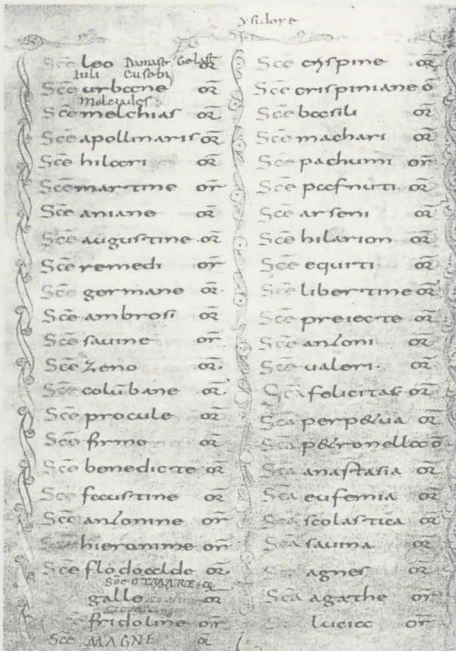 ysidore
Scē leo Damase Gelasi or̄
Iuli Eusebi
Scē urbane or̄
Melciades
Scē melchias or̄
Scē apollinaris or̄
Scē hilari or̄
Scē martine or̄
Scē aniane or̄
Scē augustine or̄
Scē remedi or̄
Scē germane or̄
Scē ambrosi or̄
Scē sauine or̄
Scē zeno or̄
Scē colūbane or̄
Scē procule or̄
Scē firme or̄
Scē benedicte or̄
Scē faustine or̄
Scē antonine or̄
hieronime or̄
Scē flodoalde or̄
Scē OTMARE or̄
galle or̄
fridoline or̄
Scē MAGNE or̄
Scē crispine or̄
Scē crispiniane o
Scē basili or̄
Scē machari or̄
Scē pachumi or̄
Scē pafnuti or̄
Scē arseni or̄
Scē hilarion or̄
Scē equiti or̄
Scē libertine or̄
Scē preiecte or̄
Scē antoni or̄
Scē ualeri or̄
Scā felicitas or̄
Scā perpetua or̄
Scā petronella o
Scā anastasia or̄
Scā eufemia or̄
Scā scolastica or̄
Scā sauina or̄
agnes or̄
Scā agathe or̄
lucia or̄